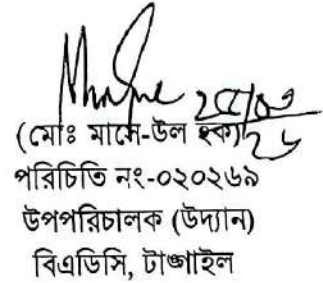 ২৫/০৩/২৬
(মোঃ মাসে-উল হক)
পরিচিতি নং-০২০২৬৯
উপপরিচালক (উদ্যান)
বিএডিসি, টাঙ্গাইল